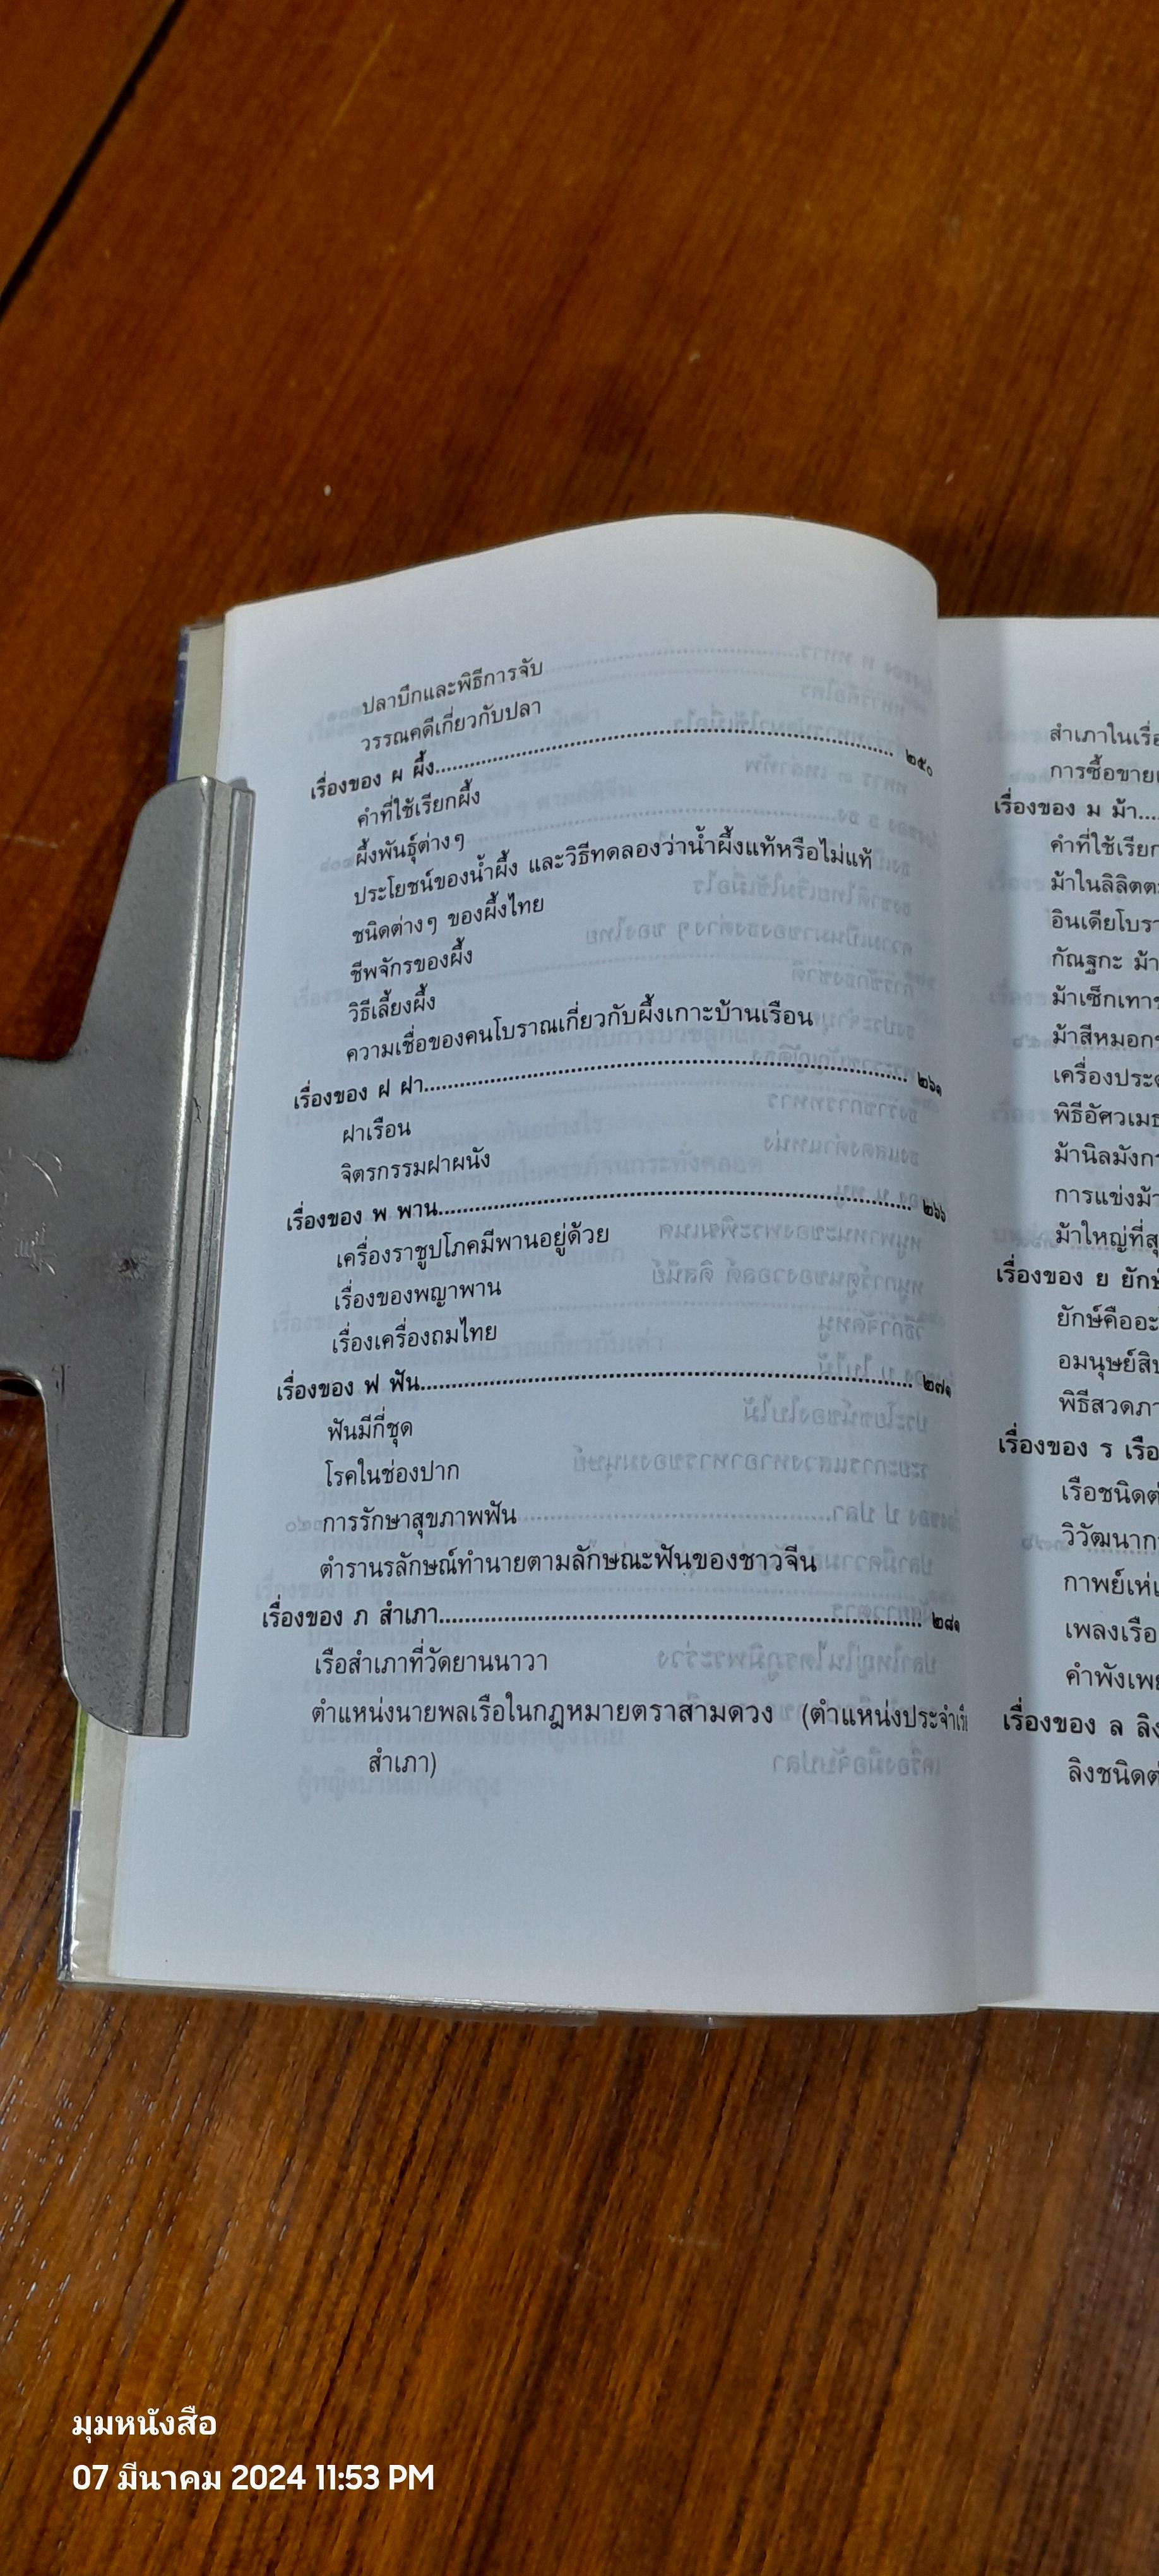 ปลาบึกและพิธีการจับ
วรรณคดีเกี่ยวกับปลา
เรื่องของ ผ ผึ้ง........................................ ๒๕๐
คำที่ใช้เรียกผึ้ง
ผึ้งพันธุ์ต่างๆ
ประโยชน์ของน้ำผึ้ง และวิธีทดลองว่าน้ำผึ้งแท้หรือไม่แท้
ชนิดต่างๆ ของผึ้งไทย
ชีพจักรของผึ้ง
วิธีเลี้ยงผึ้ง
ความเชื่อของคนโบราณเกี่ยวกับผึ้งเกาะบ้านเรือน
เรื่องของ ฝ ฝา........................................ ๒๖๑
ฝาเรือน
จิตรกรรมฝาผนัง
เรื่องของ พ พาน........................................ ๒๖๖
เครื่องราชูปโภคมีพานอยู่ด้วย
เรื่องของพญาพาน
เรื่องเครื่องถมไทย
เรื่องของ ฟ ฟัน........................................ ๒๗๑
ฟันมีกี่ชุด
โรคในช่องปาก
การรักษาสุขภาพฟัน
ตำรานรลักษณ์ทำนายตามลักษณะฟันของชาวจีน
เรื่องของ ภ สำเภา........................................ ๒๘๑
เรือสำเภาที่วัดยานนาวา
ตำแหน่งนายพลเรือในกฎหมายตราสามดวง (ตำแหน่งประจำ
สำเภา)
สำเภาในเรื่
การซื้อขาย
เรื่องของ ม ม้า....
คำที่ใช้เรียก
ม้าในลิลิต
อินเดียโบรา
กัณฐกะ ม้า
ม้าเซ็กเทา
ม้าสีหมอก
เครื่องประ
พิธีอัศวเมธ
ม้านิลมังก
การแข่งม้า
ม้าใหญ่ที่สุ
เรื่องของ ย ยักษ์
ยักษ์คืออะ
อมนุษย์สิบ
พิธีสวดภา
เรื่องของ ร เรือ
เรือชนิดต่
วิวัฒนาก
กาพย์เห่เ
เพลงเรือ
คำพังเพย
เรื่องของ ล ลิง
ลิงชนิดต่
มุมหนังสือ
07 มีนาคม 2024 11:53 PM